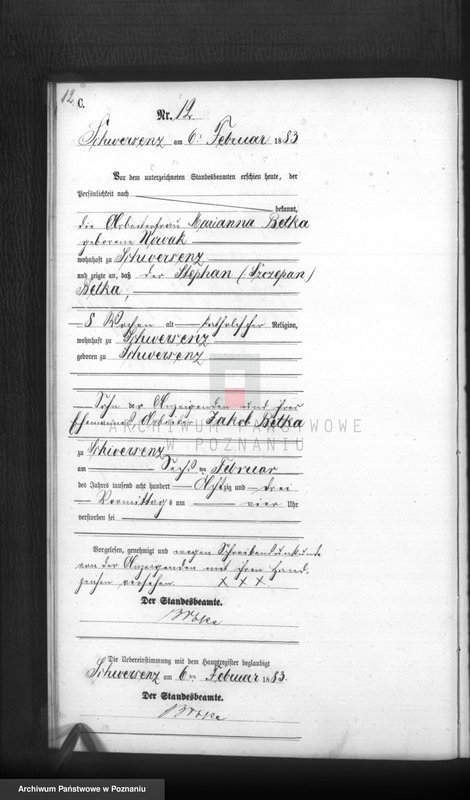 12
C.
Nr. 12
Schwersenz am 6. Februar 1883
Vor dem unterzeichneten Standesbeamten erschien heute, der
Persönlichkeit nach
bekannt,
die Arbeiterfrau Marianna Betka
geborene Nowak
wohnhaft zu Schwersenz
und zeigte an, daß der Stephan (Szczepan)
Betka,
8 Wochen alt katholischer Religion,
wohnhaft zu Schwersenz
geboren zu Schwersenz
Sohn der Anzeigenden und ihres
Ehemannes Arbeiter Jakob Betka
ARCHIWUM PAŃSTWOWE
W POZNANIU
zu Schwersenz
am Sechsten Februar
des Jahres tausend acht hundert Achtzig und drei
Vormittags um vier Uhr
verstorben sei
Vorgelesen, genehmigt und wegen Schreibensunkunde
von der Anzeigenden mit ihrem Hand-
zeichen versehen. X X X
Der Standesbeamte.
Die Uebereinstimmung mit dem Hauptregister beglaubigt
Schwersenz am 6ten Februar 1883.
Der Standesbeamte.
Archiwum Państwowe w Poznaniu